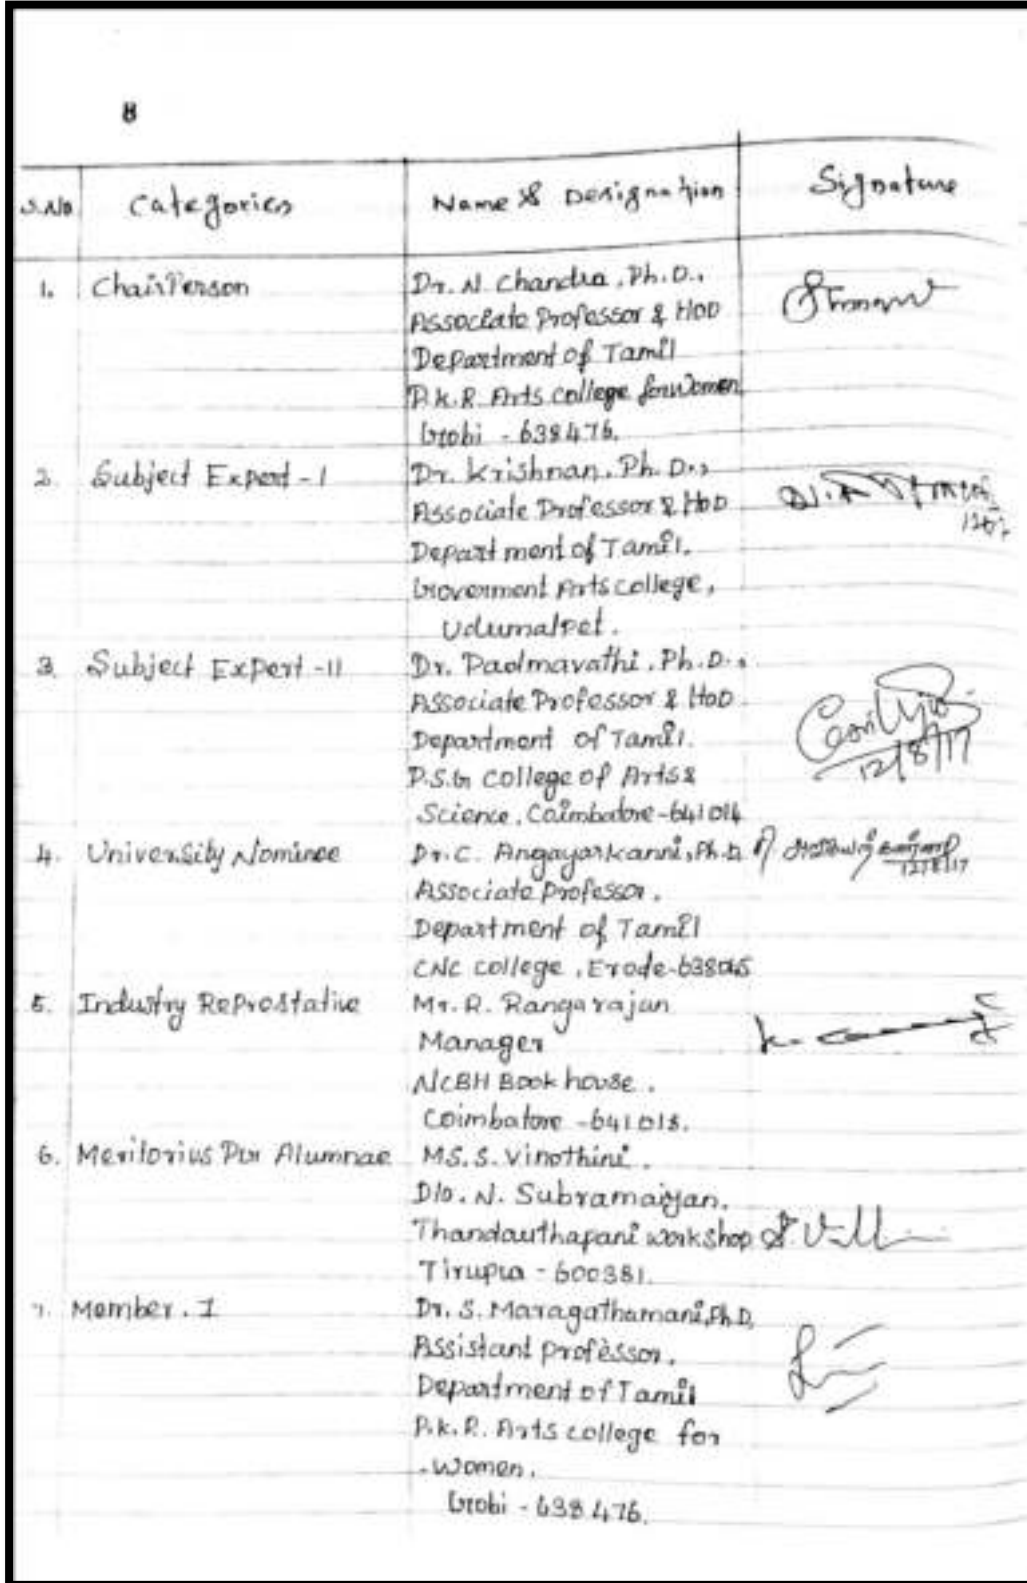 8
S.No Categories Name & Designation Signature
1. ChairPerson Dr. N. Chandra, Ph.D.,
Associate Professor & HOD
Department of Tamil
P.K.R. Arts College for Women,
Gobi - 638476.
2. Subject Expert - I Dr. Krishnan, Ph.D.,
Associate Professor & HOD
Department of Tamil.
Goverment Arts college,
Udumalpet.
3. Subject Expert - II Dr. Padmavathi, Ph.D.,
Associate Professor & HOD
Department of Tamil. 12/8/17
P.S.G College of Arts &
Science, Coimbatore - 641014
4. University Nominee Dr. C. Angayarkanni, Ph.D. 12/8/17
Associate Professor.
Department of Tamil
CNC College, Erode-
5. Industry Manager
Mr. R. Rangarajan
NCBH Book house.
Coimbatore - 641018.
6. Alumnae MS. S. Vinothini.
D/o. N.
workshop
- 600381.
7. Member. I Dr. S. Maragathamani, Ph.D,
Assistant professor,
Department of Tamil
P.K.R. Arts college for
women.
Gobi - 638 476.